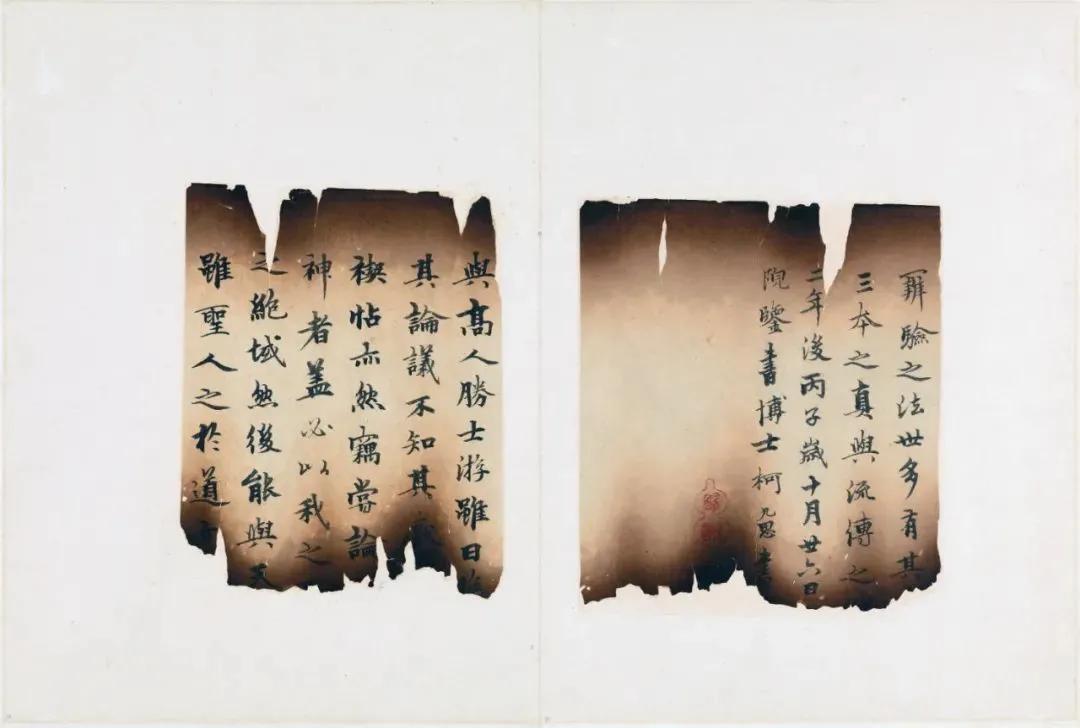 辨驗之法世多有其
三本之真與流傳之
二年後丙子歲十月廿六日
院鑒書博士柯九思書
與高人勝士游雖日
其論議不知其
禊帖亦然竊嘗論
神者蓋必以我之
之絕域然後能與天
雖聖人之於道